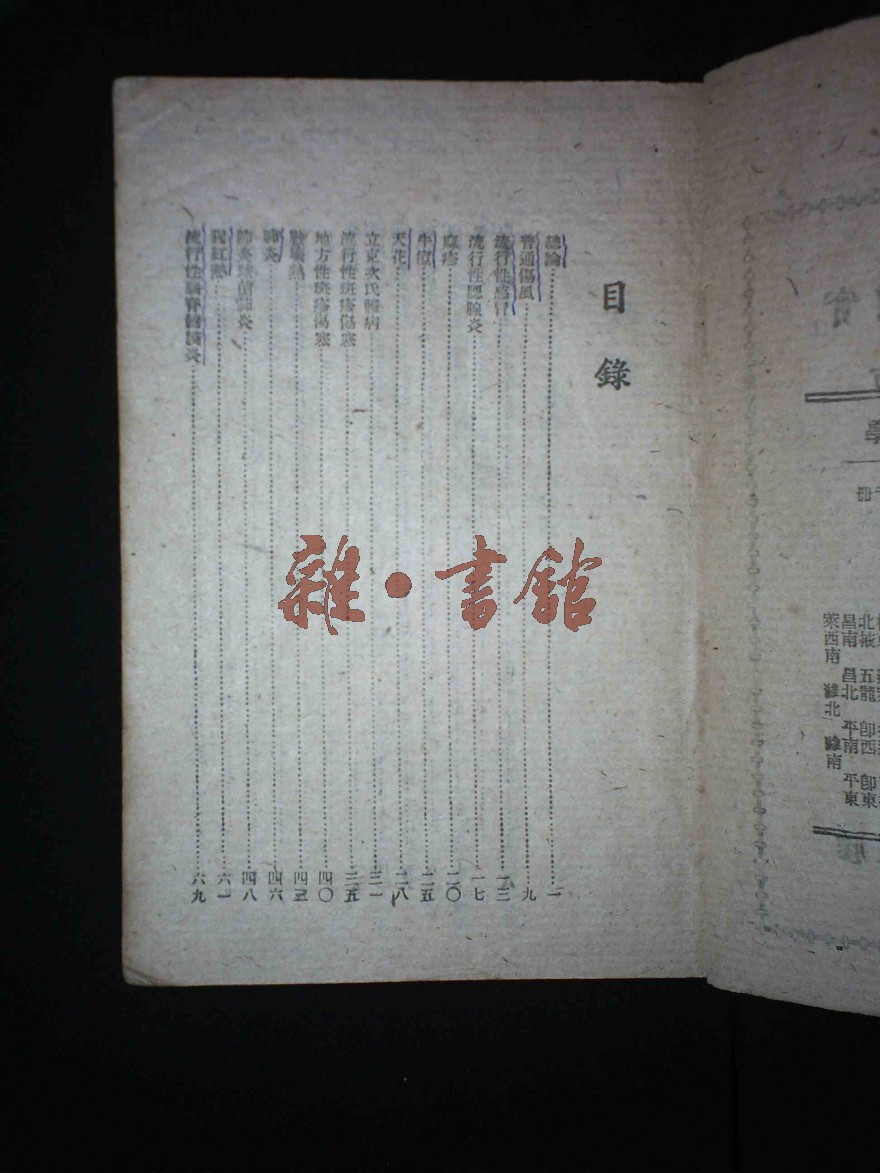 目錄
總論一
普通傷風九
流行性感冒一三
流行性腮腺炎一七
麻疹二〇
牛痘二五
天花二八
立克次氏體病三一
流行性斑疹傷寒三五
地方性斑疹傷寒四〇
戰壕熱四三
肺炎四六
肺炎球菌肺炎四八
猩紅熱六一
流行性腦脊髓膜炎六九
雜·書館